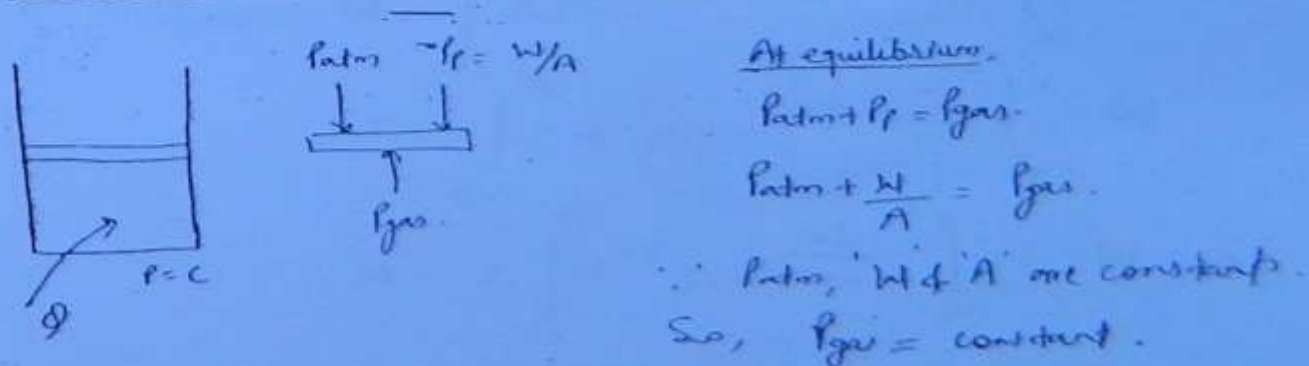 Patm Pp = W/A
Pgas.
P=C
Q
At equilibrium.
Patm + Pp = Pgas.
Patm + W/A = Pgas.
∵ Patm, 'W' & 'A' are constants.
So, Pgas = constant.